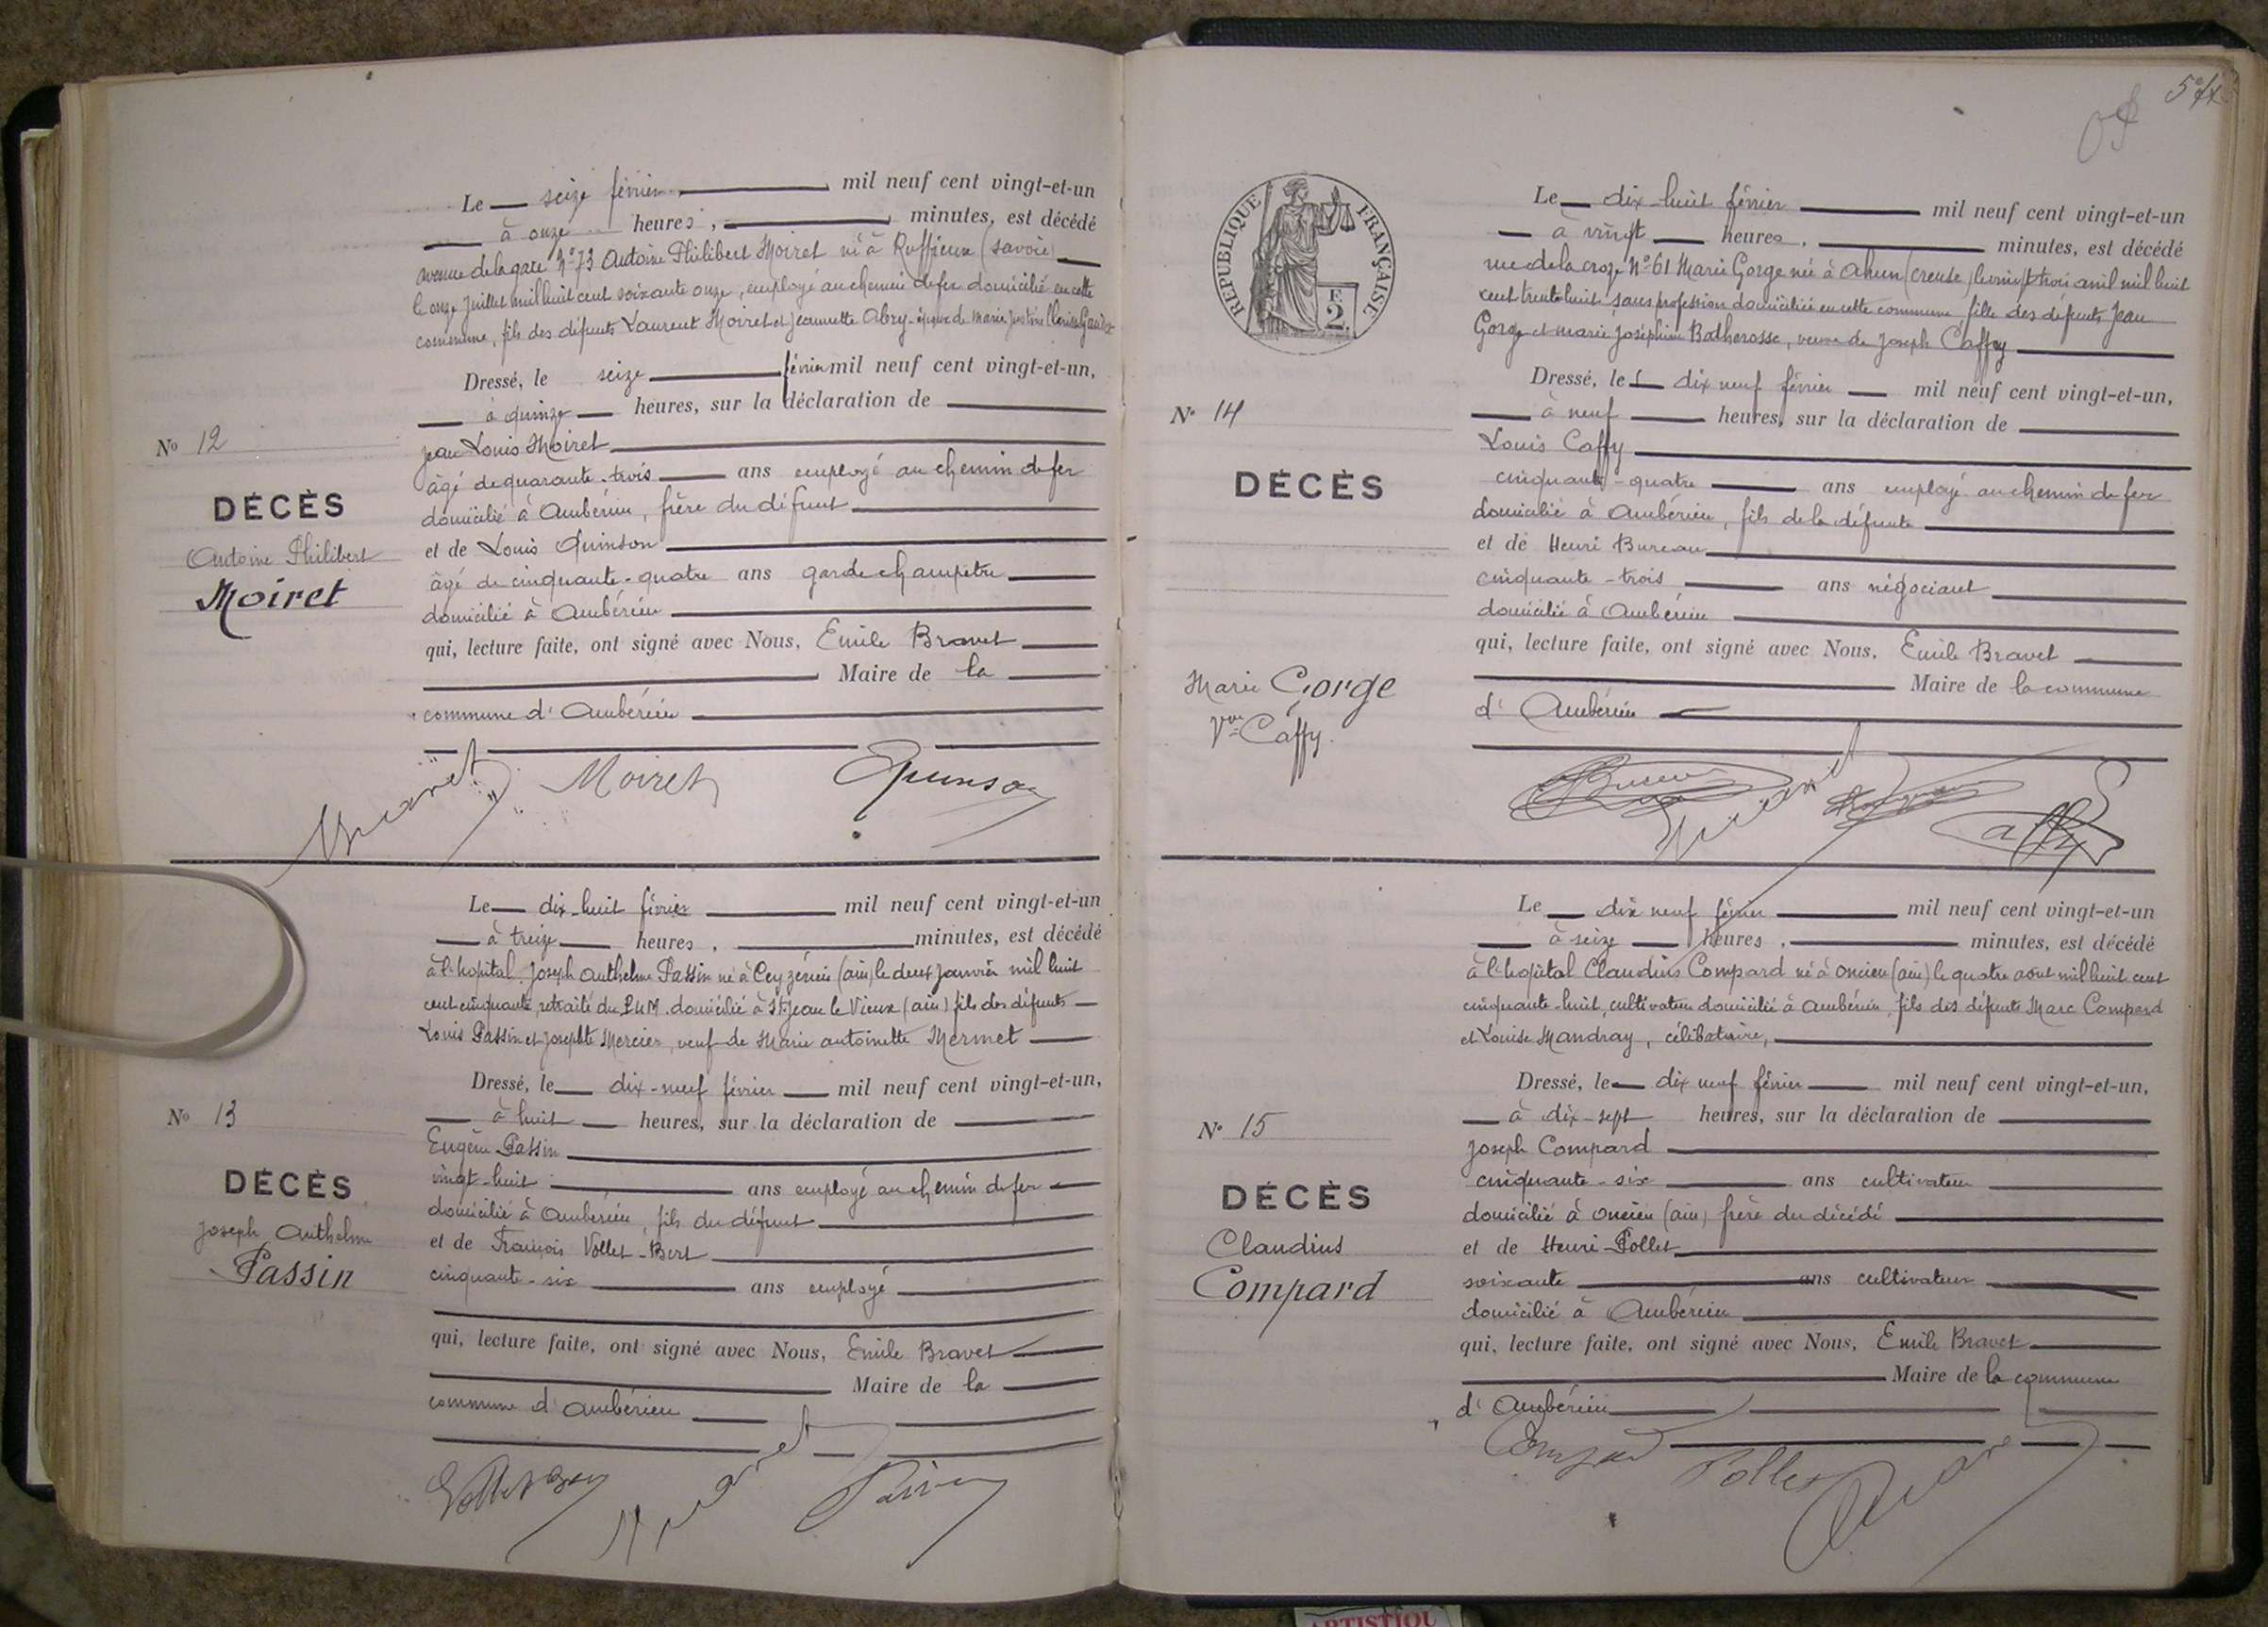 Le seize février mil neuf cent vingt-et-un
à onze heures, minutes, est décédé
avenue de la gare N° 73 Antoine Philibert Moiret né à Ruffieux (Savoie)
le onze Juillet mil huit cent soixante onze, employé au chemin de fer domicilié en cette
commune, fils des défunts Laurent Moiret et Jeannette Abry - époux de Marie Justine
Dressé, le seize février mil neuf cent vingt-et-un,
à quinze heures, sur la déclaration de
Jean Louis Moiret
âgé de quarante-trois ans employé au chemin de fer
domicilié à Ambérieu, frère du défunt
et de Louis Quinson
âgé de cinquante-quatre ans garde champêtre
domicilié à Ambérieu
qui, lecture faite, ont signé avec Nous, Emile Bravet
Maire de la
commune d'Ambérieu
No 12
DÉCÈS
Antoine Philibert
Moiret
Bravet Moiret Quinson
Le dix-huit février mil neuf cent vingt-et-un
à treize heures, minutes, est décédé
à l'hopital Joseph Anthelme Passin né à Ceyzérieu (ain) le deux Janvier mil huit
cent cinquante, retraité du P L M. domicilié à St Jean le Vieux (ain) fils des défunts
Louis Passin et Josephte Mercier, veuf de Marie antoinette Mermet
Dressé, le dix-neuf février mil neuf cent vingt-et-un,
à huit heures, sur la déclaration de
Eugène Passin
vingt-huit ans employé au chemin de fer
domicilié à Ambérieu, fils du défunt
et de François Vollet-Bert
cinquante-six ans employé
qui, lecture faite, ont signé avec Nous, Emile Bravet
Maire de la
commune d'ambérieu
No 13
DÉCÈS
Joseph Anthelme
Passin
Bravet Passin
RÉPUBLIQUE FRANÇAISE
E
2.
Le dix-huit février mil neuf cent vingt-et-un
à vingt heures, minutes, est décédé
rue de la croze N° 61 Marie Gorge née à Ahun (Creuse) le vingt trois avril mil huit
cent trente huit, sans profession domiciliée en cette commune, fille des défunts Jean
Gorge et marie Joséphine, veuve de Joseph Caffy
Dressé, le dix neuf février mil neuf cent vingt-et-un,
à neuf heures, sur la déclaration de
Louis Caffy
cinquante-quatre ans employé au chemin de fer
domicilié à Ambérieu, fils de la défunte
et de Henri Bureau
cinquante-trois ans négociant
domicilié à Ambérieu
qui, lecture faite, ont signé avec Nous, Emile Bravet
Maire de la commune
d'Ambérieu
N° 14
DÉCÈS
Marie Gorge
Vve Caffy.
Bureau Bravet Caffy
Le dix neuf février mil neuf cent vingt-et-un
à seize heures, minutes, est décédé
à l'hopital Claudius Compard né à Oncieu (ain) le quatre aout mil huit cent
cinquante-huit, cultivateur domicilié à Ambérieu, fils des défunts Marc Compard
et Louise Mandray, célibataire,
Dressé, le dix neuf février mil neuf cent vingt-et-un,
à dix-sept heures, sur la déclaration de
Joseph Compard
cinquante-six ans cultivateur
domicilié à Oncieu (ain) frère du décédé
et de Henri Pollet
soixante ans cultivateur
domicilié à Ambérieu
qui, lecture faite, ont signé avec Nous, Emile Bravet
Maire de la commune
d'Ambérieu
N° 15
DÉCÈS
Claudius
Compard
Compard Pollet Bravet
ARTISTIQU